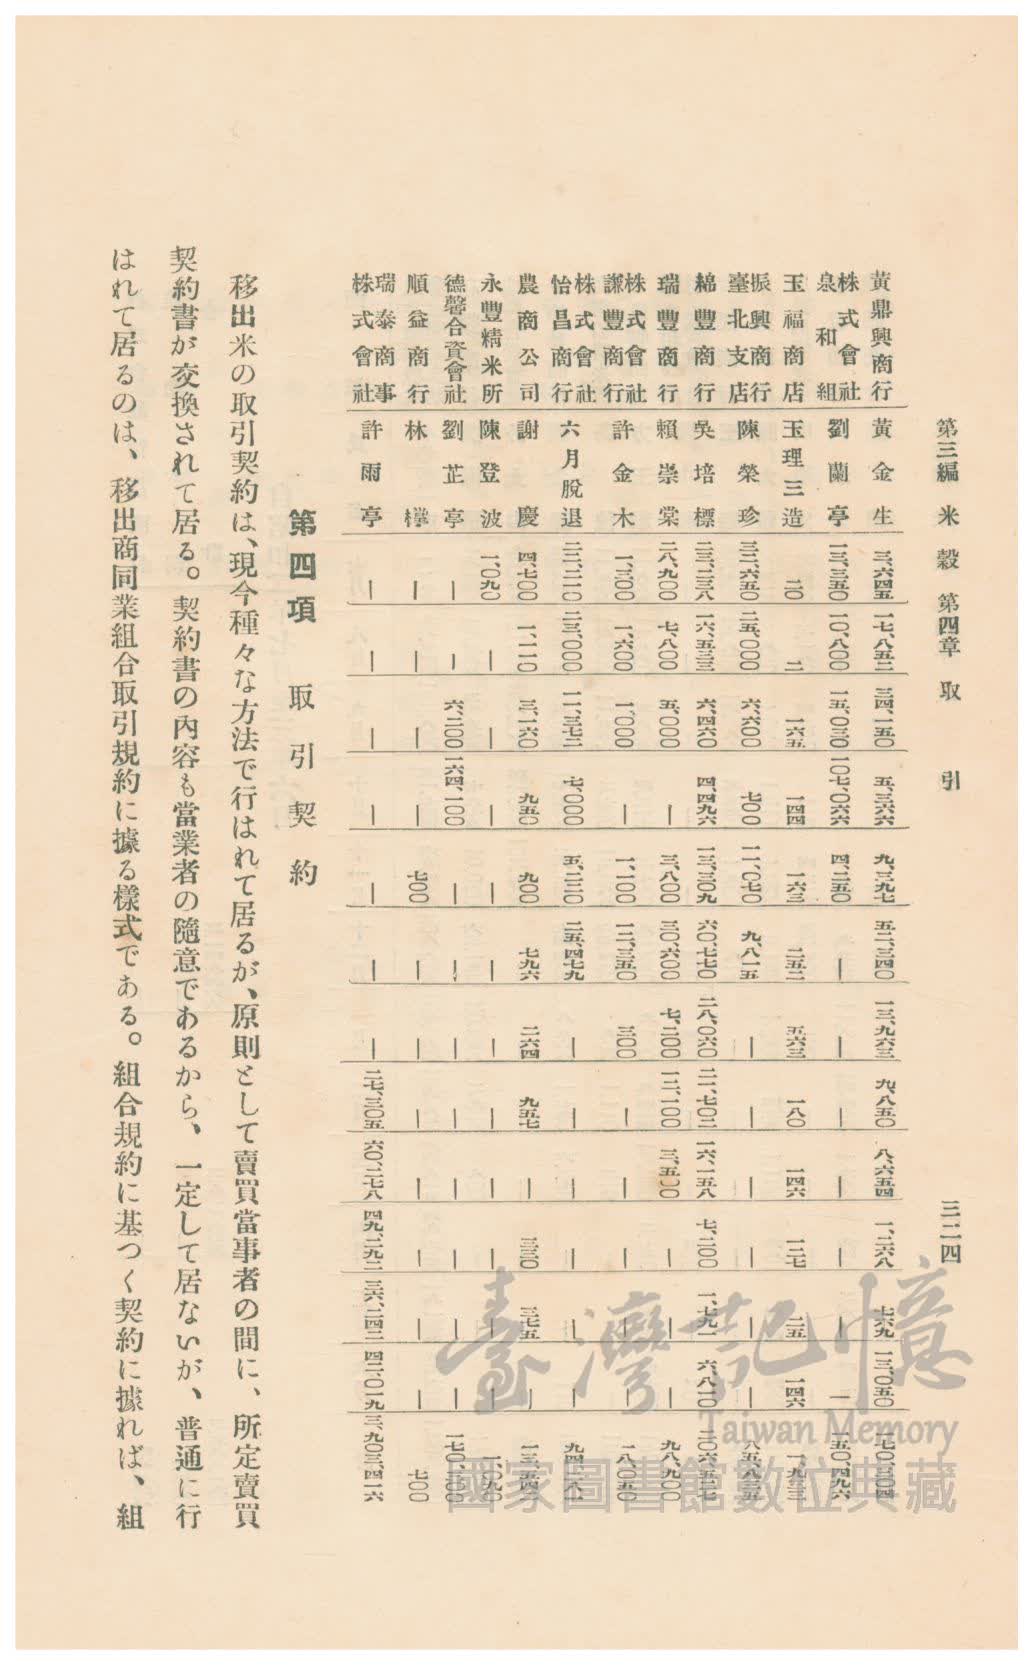 第三編 米穀 第四章 取引 三二四
黃鼎興商行 黃金生 三、六四五 一七、八五二 三四、一五〇 五、三六六 九、三九七 五二、三四〇 一三、九六三 九、八五〇 八、六五四 一、二六八 七六九 一三、〇五〇 一七〇、三〇四
株式會社泉和組 劉蘭亭 一三、三五〇 一〇、八〇〇 一五、〇三〇 一〇七、〇六六 四、二五〇 — — — — — — — 一五〇、四九六
玉福商店 玉理三造 二〇 二 一六五 一四四 一六三 二五二 五六三 一八〇 一四六 一二七 二五 一四六
振興商行臺北支店 陳榮珍 三二、六五〇 二五、〇〇〇 六、六〇〇 七〇〇 一一、〇七〇 九、八一五 — — — — — —
綿豐商行 吳培標 二三、二三八 一六、五三三 六、四六〇 四、四九六 一三、三〇九 六〇、七七〇 二八、〇六〇 二一、七〇二 一六、一五八 七、二〇〇 一、七九一 六、八一〇
瑞豐商行 賴崇棠 二八、九〇〇 七、八〇〇 五、〇〇〇 — 三、八〇〇 三〇、六〇〇 七、二〇〇 一二、一〇〇 三、五〇〇 — — — 九八、九〇〇
株式會社謙豐商行 許金木 一、三〇〇 一、六〇〇 一、〇〇〇 — 一、一〇〇 一二、三五〇 三〇〇 — — — — — 一八、〇五〇
株式會社怡昌商行 六月脫退 二二、二一〇 二三、〇〇〇 一一、三七二 七、〇〇〇 五、二三〇 二五、四七九 — — — — — —
農商公司 謝慶 四、七〇〇 一、一一〇 三、一六〇 九五〇 九〇〇 七九六 二六四 九五七 — 三三〇 三七五 —
永豐精米所 陳登波 一、〇九〇 — — — — — — — — — — — 一、〇九〇
德馨合資會社 劉芷亭 — — 六、二〇〇 一六四、一〇〇 — — — — — — — — 一七〇、三〇〇
順益商行 林 — — — — 七〇〇 — — — — — — — 七〇〇
瑞泰商事株式會社 許雨亭 — — — — — — — 二七、三〇五 六〇、二七八 四九、二九二 三六、二四二 四二、〇一九 三、九〇三、四一六
第四項 取引契約
移出米の取引契約は、現今種々な方法で行はれて居るが、原則として賣買當事者の間に、所定賣買
契約書が交換されて居る。契約書の內容も當業者の隨意であるから、一定して居ないが、普通に行
はれて居るのは、移出商同業組合取引規約に據る樣式である。組合規約に基つく契約に據れば、組
臺灣記憶
Taiwan Memory
國家圖書館數位典藏